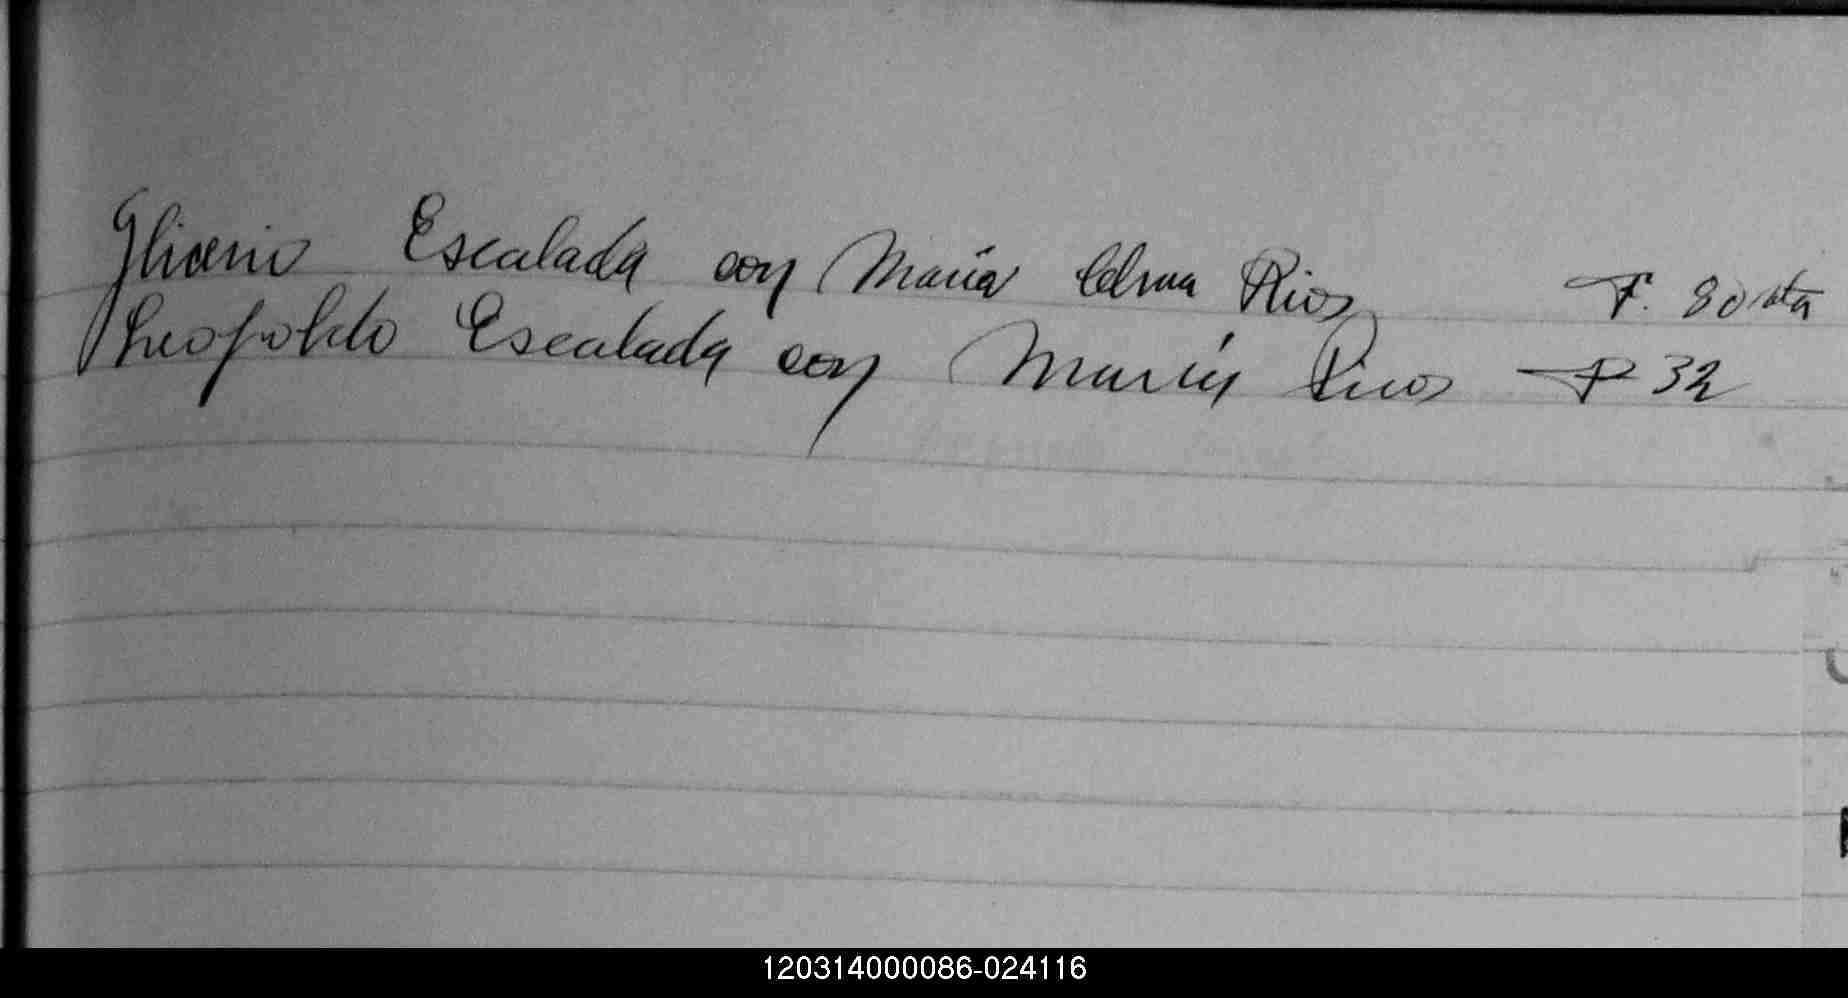 Glicerio Escalada con María Celma Rios F. 80 vta
Leopoldo Escalada con María Rios F 32
120314000086-024116